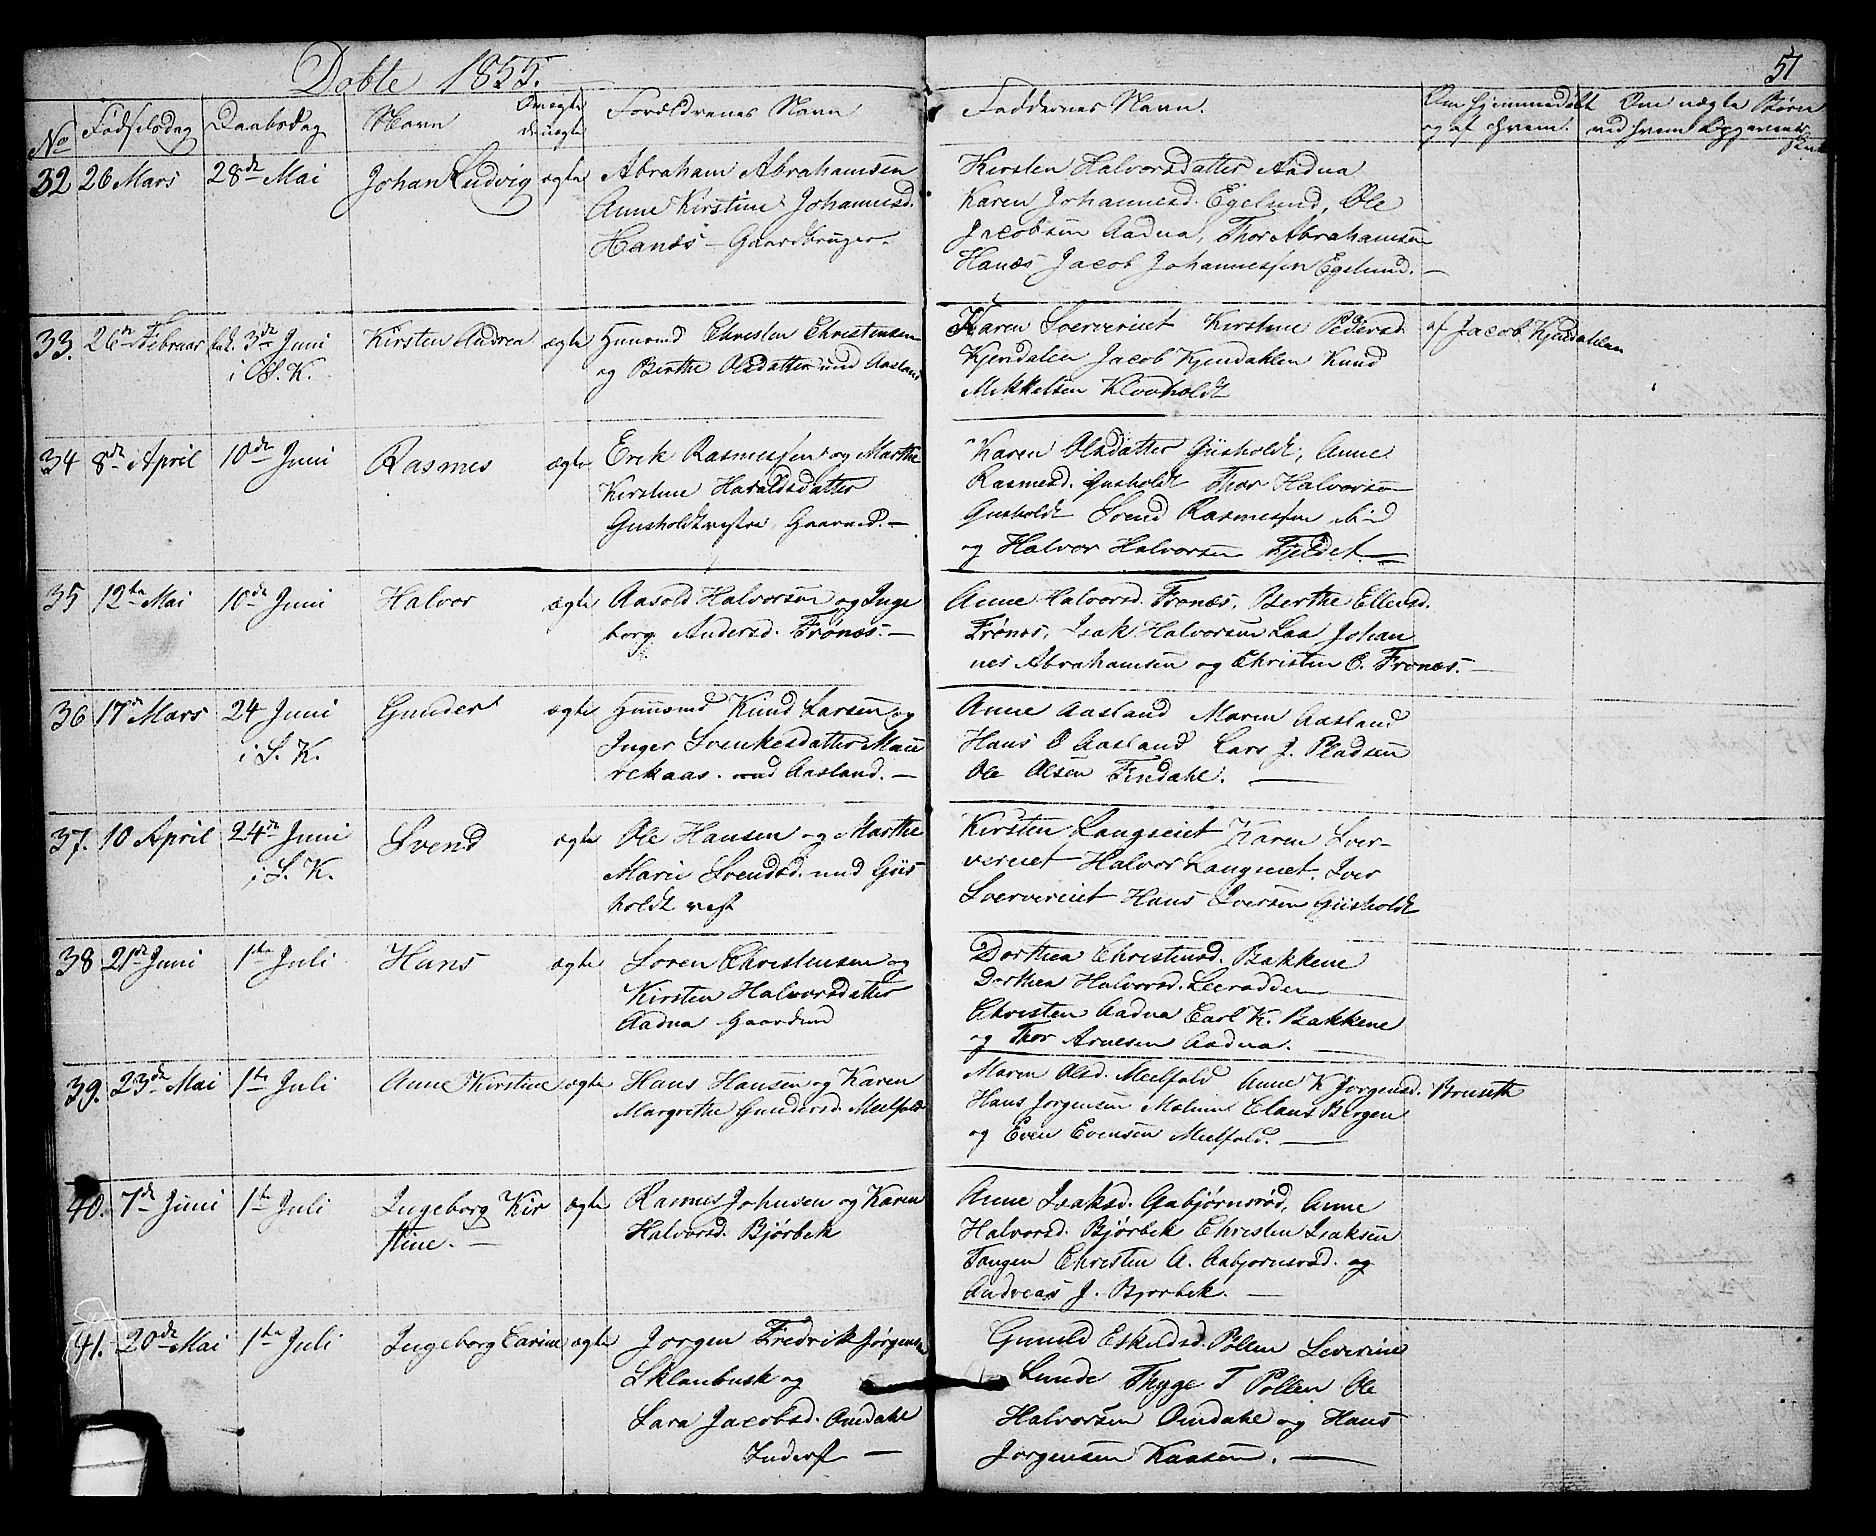 Døbte 1855.
51
No
Fødselsdag
Daabsdag
Navn
Om ægte
Forældrenes Navn
Faddernes Navn.
Om hjemmedøbt
og af hvem.
Om uægte Børn
ved hvem Opgaven
32 26 Mars 28de Mai Johan Ludvig ægte Abraham Abrahamsen
Anne Kirstine Johannesd.
Hanæs – Gaardbruger
Kirsten Halvorsdatter Aadna
Karen Johannesd. Egelund, Ole
Jacobsen Aadna, Thor Abrahamsen
Hanæs Jacob Johannessen Egelund. –
33. 26de Februar 3de Juni Kirsten Andrea ægte Huusmd Christen Christensen
i S. K. og Birthe Olsdatter und Aasland
Karen Kirstine Pedersd.
Kjendalen Jacob Kjendahlen Knud
Mikkelsen Klovholdt
af Jacob Kjendahlen
34 8de April 10de Juni Rasmus ægte Erik Rasmussen og Marthe
Kirstine Haraldsdatter
Gusholdt vestre Gaarmd. –
Karen Olsdatter Gusholdt, Anne
Rasmusd. Gusholdt Thor Halvorsen
Gusholdt Svend Rasmussen
og Halvor Halvorsen Fjeldet –
35 12te Mai 10de Juni Halvor ægte Aasold Halvorsen og Inge
borg Andersd. Frønæs. –
Anne Halvorsd. Frønæs, Berthe Ellensd.
Frønæs, Isak Halvorsen Laa Johan
nes Abrahamsen og Christen C. Frønæs. –
36 17de Mars 24 Juni Gunder ægte Huusmd Knud Larsen og
i S. K. Inger Svenkesdatter Mau
rekaas. und Aasland. –
Anne Aasland Maren Aasland
Hans O Aasland Lars J. Pladsen
Ole Olsen Findahl. –
37. 10 April 24de Juni Svend ægte Ole Hansen og Marthe
i S. K. Marie Svendsd. und Gus
holdt vest
Kirsten Langseiet Karen Sver-
vereiet Halvor Langseiet. Iver
Sververeiet Hans Iversen Gusholdt
38 21de Juni 1te Juli Hans ægte Søren Christensen og
Kirsten Halvorsdatter
Aadna Gaardmd
Dorthea Christensd. Bakkene
Dorthea Halvorsd. Leeradden
Christen Aadna Carl K. Bakkene
og Thor Arnesen Aadna. –
39. 23de Mai 1te Juli Anne Kirstine ægte Hans Hansen og Karen
Margrethe Gundersd. Meelfald
Maren Olsd. Meelfald Anne K Jorgensd. Bruseth
Hans Jorgensen Molum Claus Bergen
og Even Evensen Meelfald. –
40. 7de Juni 1te Juli Ingeborg Kir
stine. –
ægte Rasmus Johnsen og Karen
Halvorsd. Bjørbek
Anne Isaksd. Gabjørnsrød, Anne
Halvorsd. Bjørbek Christen Isaksen
Tangen Christen A. Aabjornsrød. og
Andreas J. Bjørbek. –
41. 20de Mai 1te Juli Ingeborg Carine ægte Jorgen Fredrik Jørgensen
Sklanbusk og
Sara Jacobsd. Omdahl
Inderst –
Gunild Eskildsd. Pollen Severine
Lunde Thyge T Pollen Ole
Halvorsen Omdahl og Hans
Jorgensen Kaasen. –